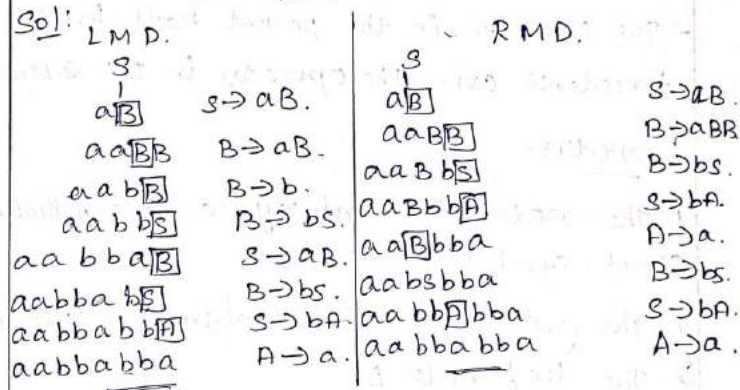 Sol:
L M D.
S
aB S→aB.
aaBB B→aB.
aabB B→b.
aabbS B→bS.
aabbaB S→aB.
aabbabS B→bS.
aabbabbA S→bA.
aabbabba A→a.
R M D.
S
aB S→aB.
aaBB B→aBB
aaBbS B→bS.
aaBbbA S→bA.
aaBbba A→a.
aabSbba B→bS.
aabbAbba S→bA.
aabbabba A→a.